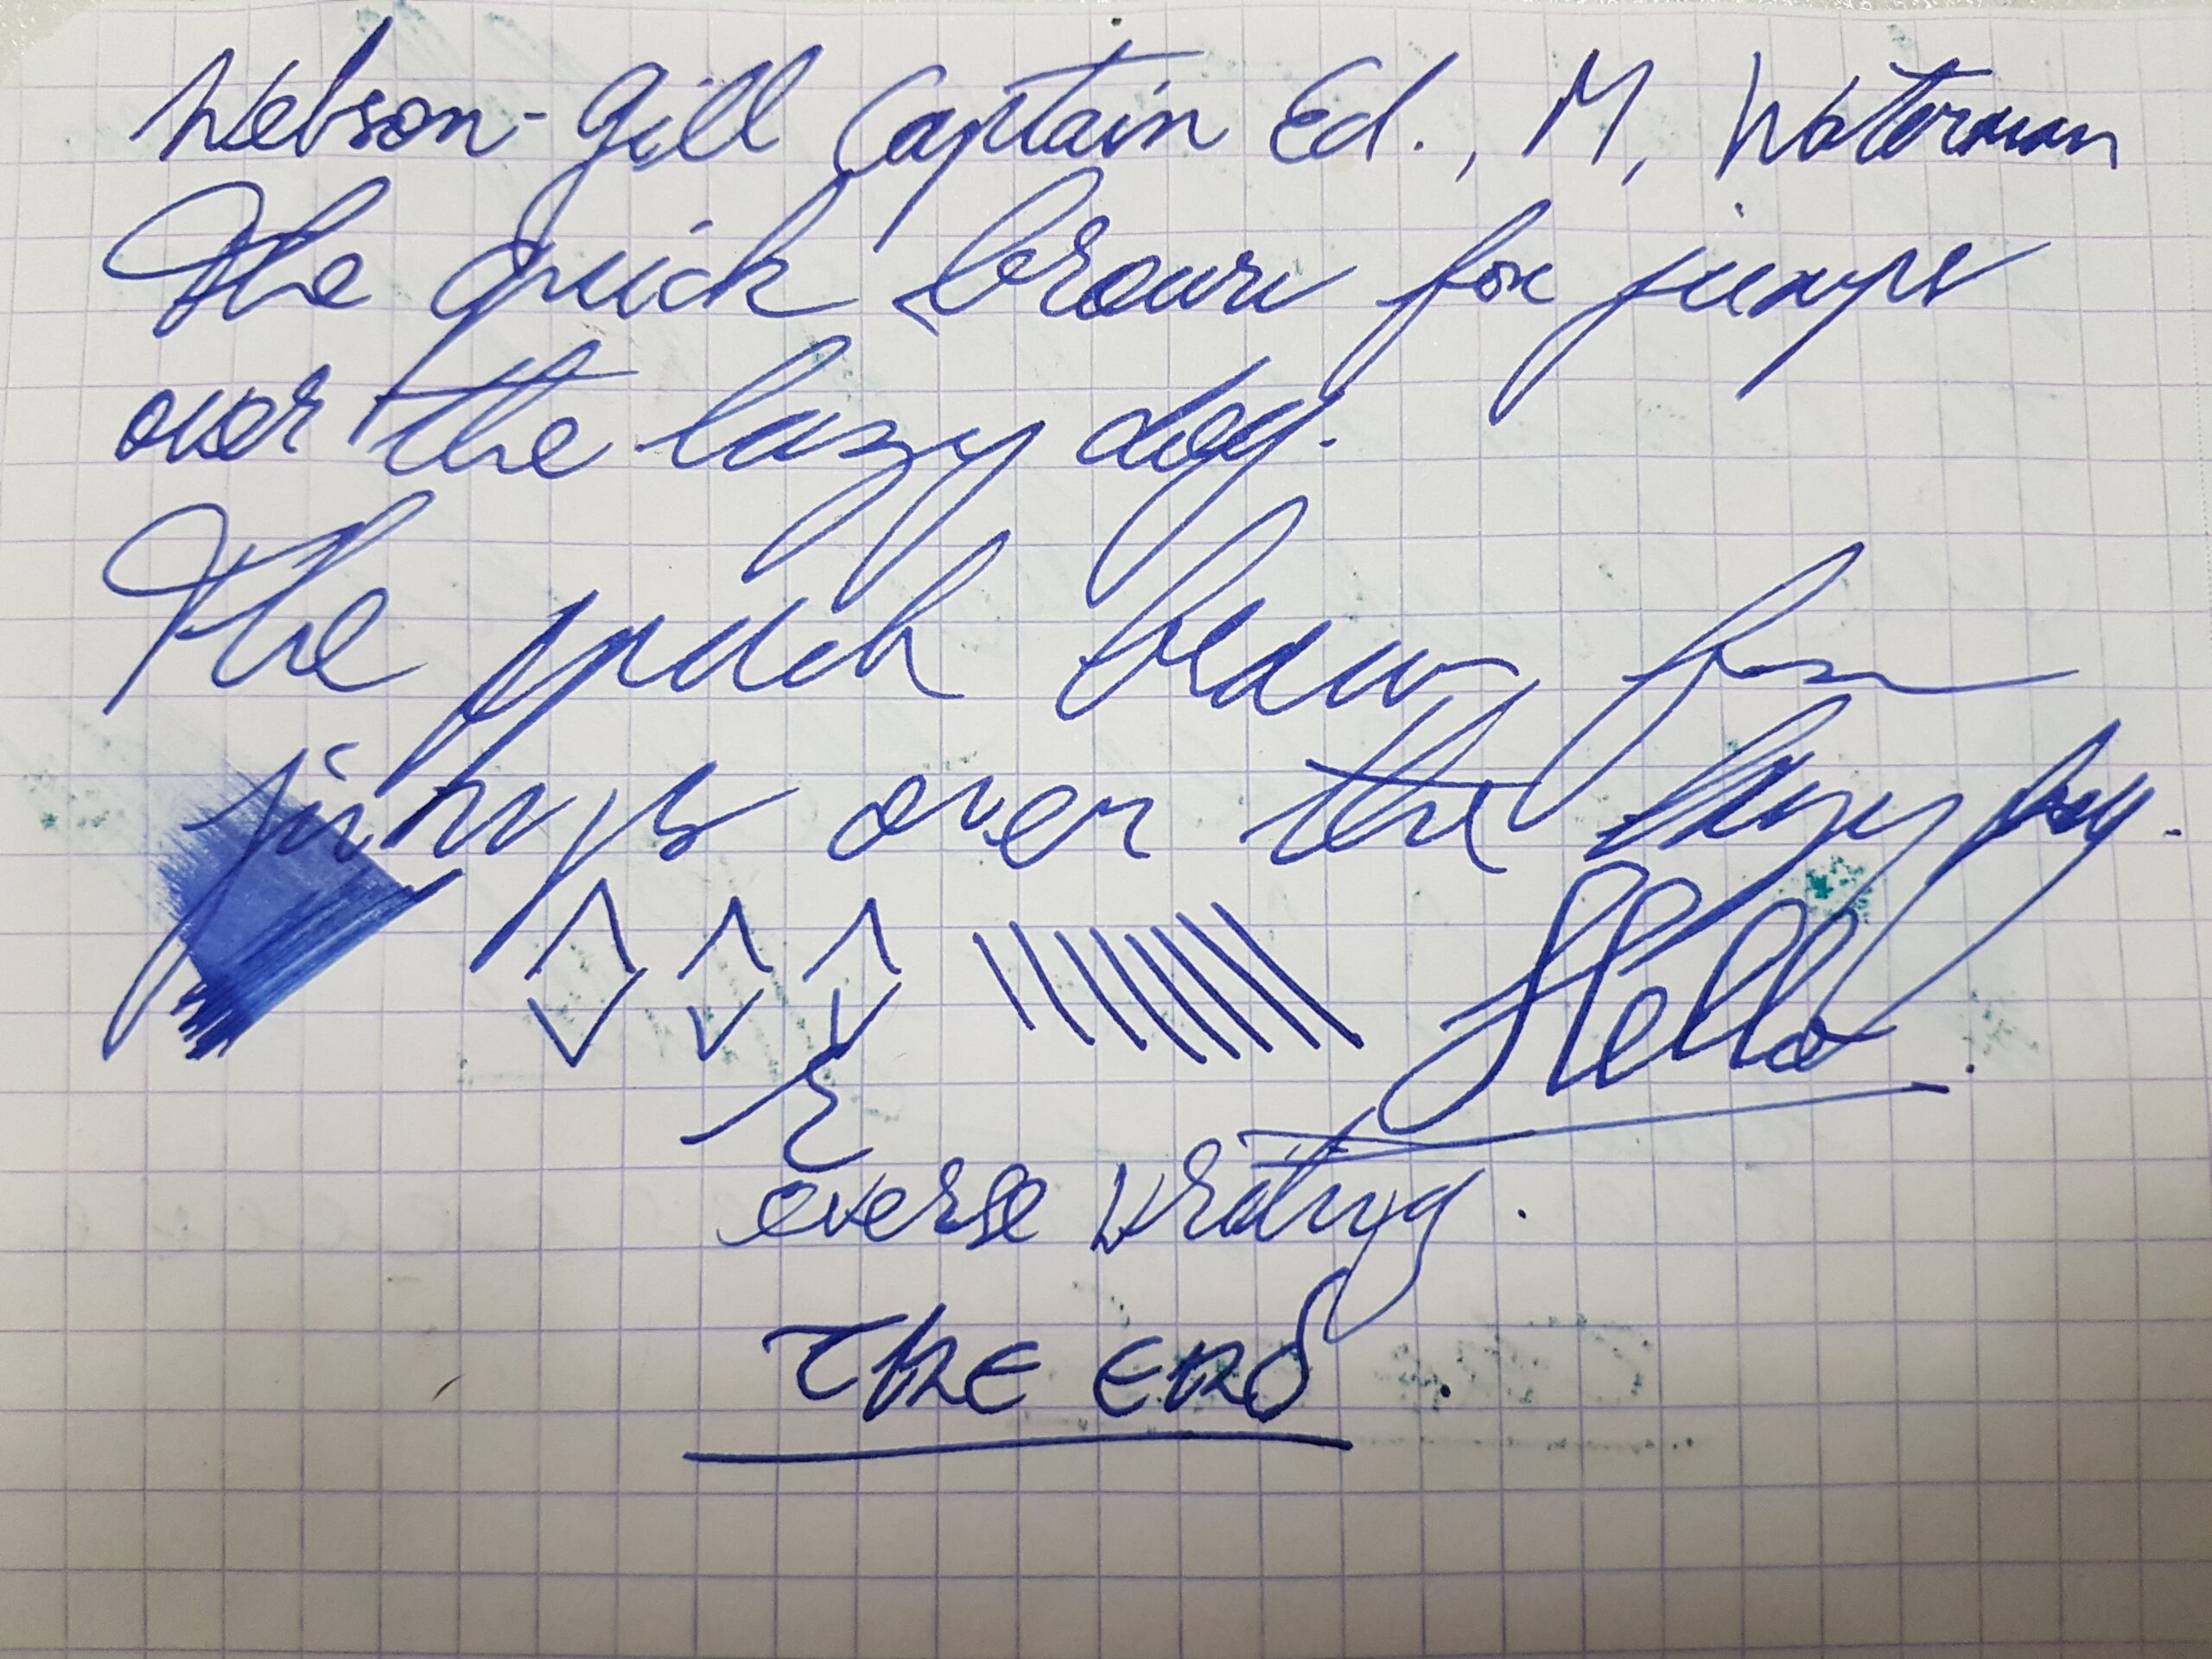 Webson-Gill Captain Ed., M, Waterman
The quick brown fox jumps
over the lazy dog.
The quick brown fox
jumps over the lazy dog.
Hello.
Reverse writing.
The End.